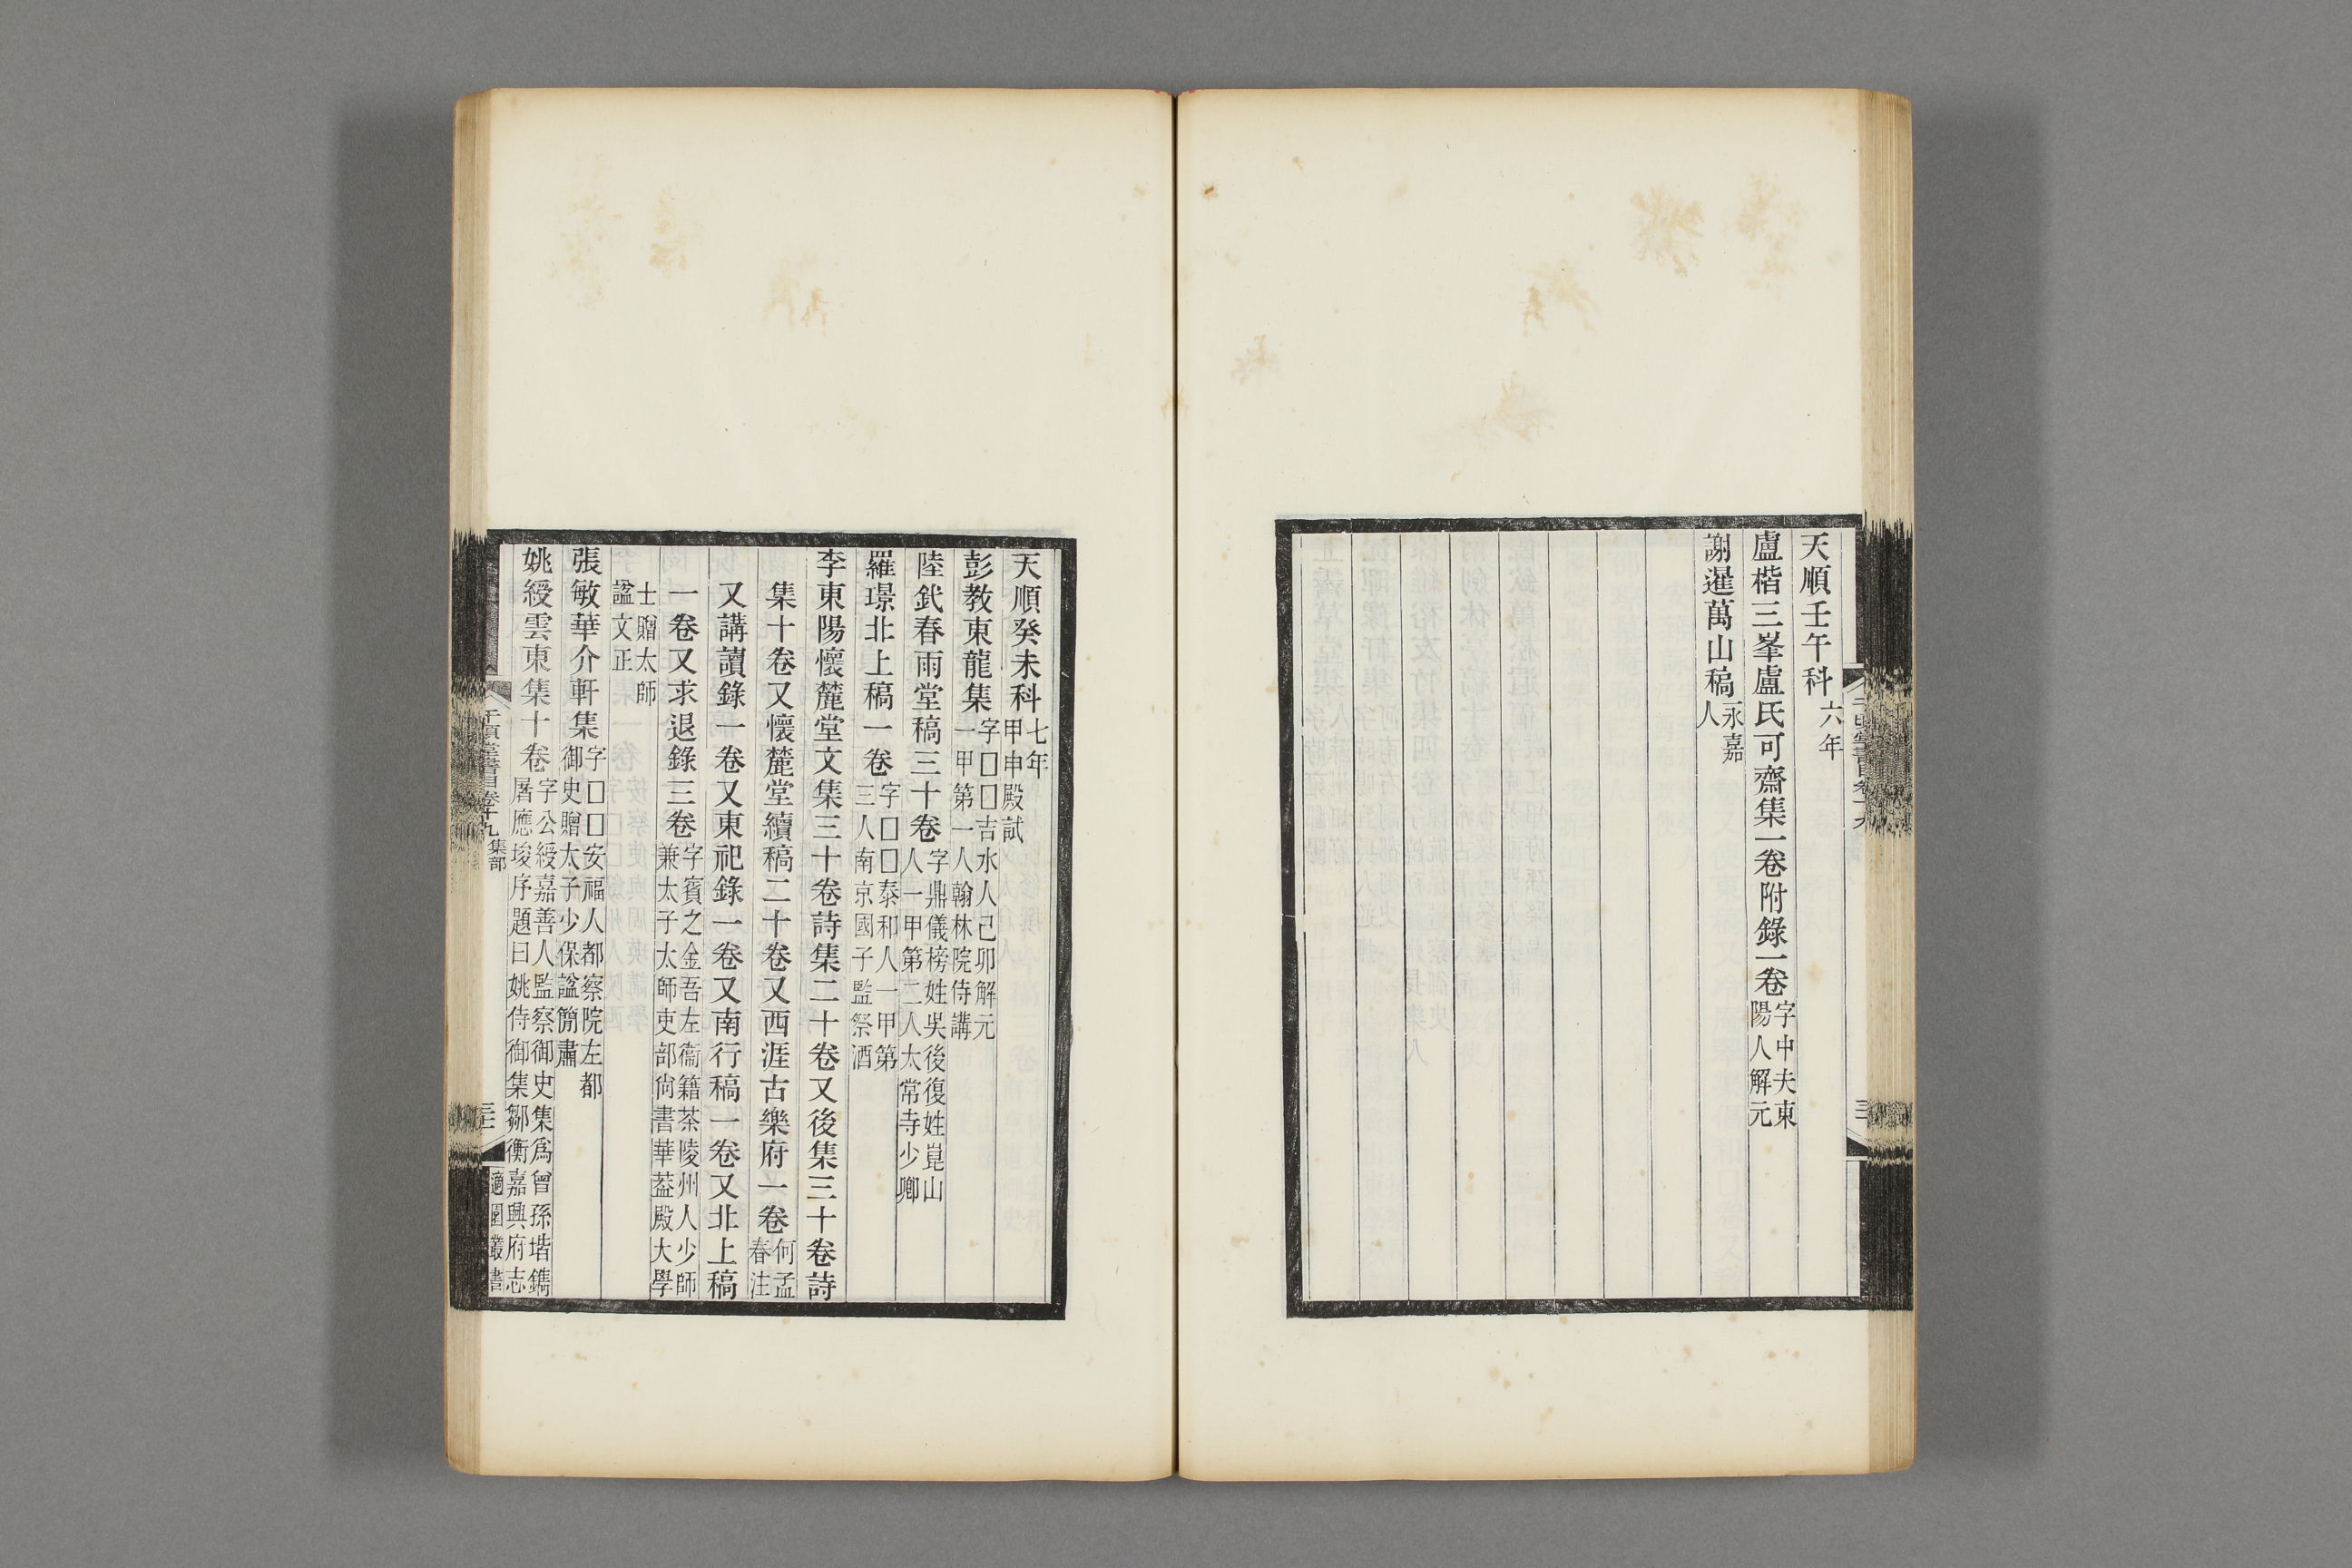 天順壬午科六年
盧楷三峯盧氏可齋集一卷附錄一卷字中夫東
陽人解元
謝暹萬山稿永嘉
人
天順癸未科七年
甲申殿試
彭教東龍集字□□吉水人己卯解元
一甲第一人翰林院侍講
陸釴春雨堂稿三十卷字鼎儀榜姓吳後復姓崑山
人一甲第二人太常寺少卿
羅璟北上稿一卷字□□泰和人一甲第
三人南京國子監祭酒
李東陽懷麓堂文集三十卷詩集二十卷又後集三十卷詩
集十卷又懷麓堂續稿二十卷又西涯古樂府一卷何孟
春注
又講讀錄一卷又東祀錄一卷又南行稿一卷又北上稿
一卷又求退錄三卷字賓之金吾左衞籍茶陵州人少師
兼太子太師吏部尙書華蓋殿大學
士贈太師
諡文正
張敏華介軒集字□□安福人都察院左都
御史贈太子少保諡簡肅
姚綬雲東集十卷字公綬嘉善人監察御史集爲曾孫堦鐫
屠應埈序題曰姚侍御集鄒衡嘉興府志
千頃堂書目卷十九 集部
適園叢書